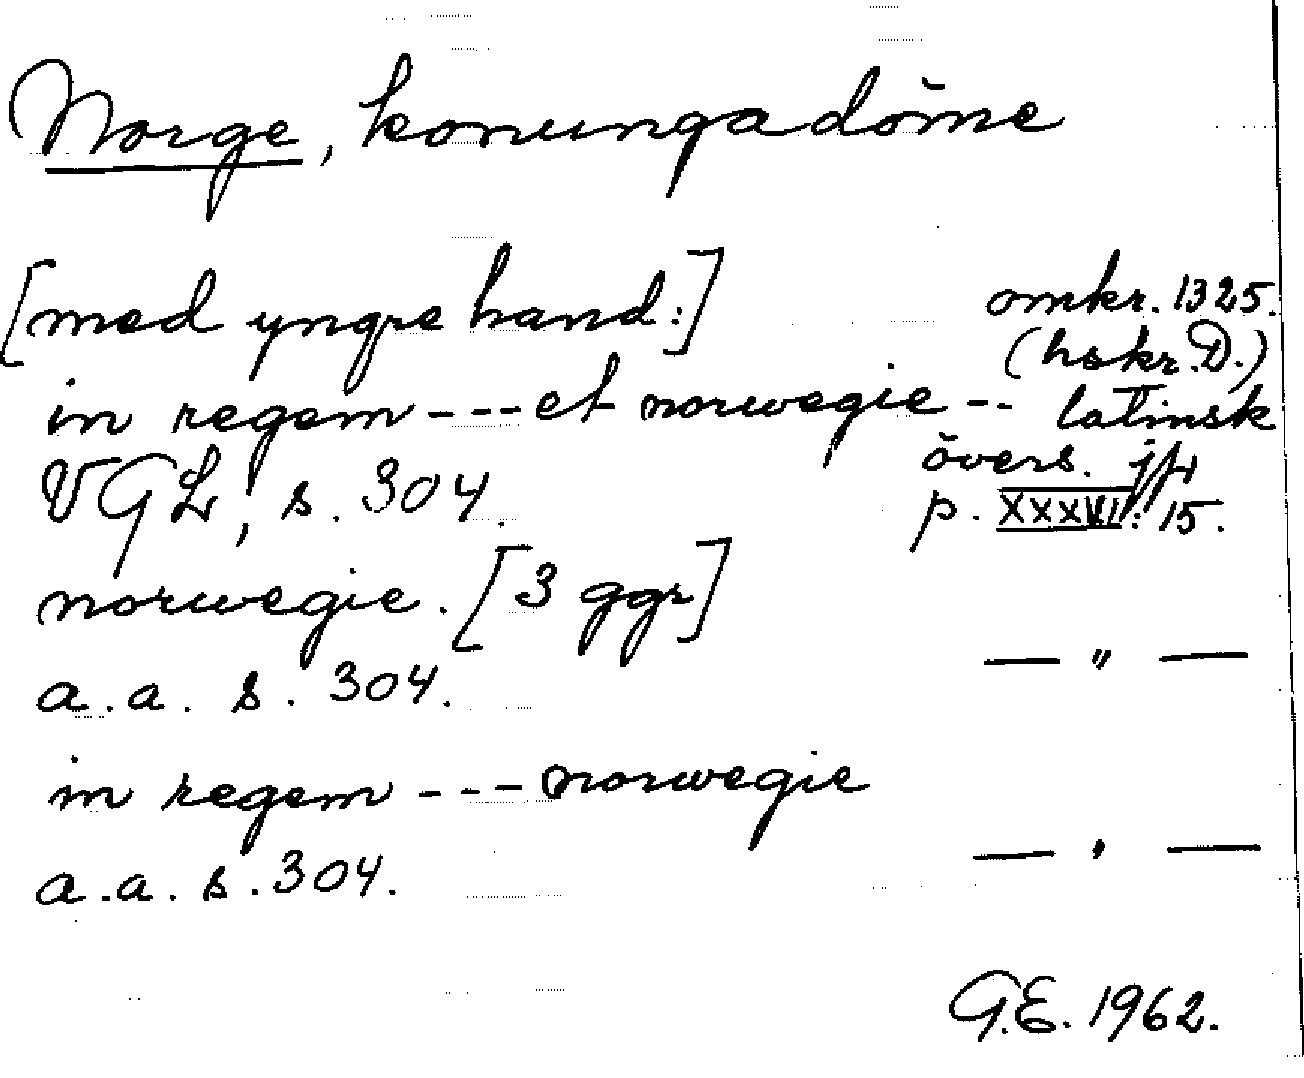 Norge, konungadöme
[med yngre hand:]
omkr. 1325.
(hskr. D.)
in regem --- et norwegie --
latinsk
övers. jfr
VGL, s. 304.
p. XXXVI: 15.
norwegie. [3 ggr]
— " —
a.a. s. 304.
in regem --- norwegie
— " —
a.a. s. 304.
G.E. 1962.